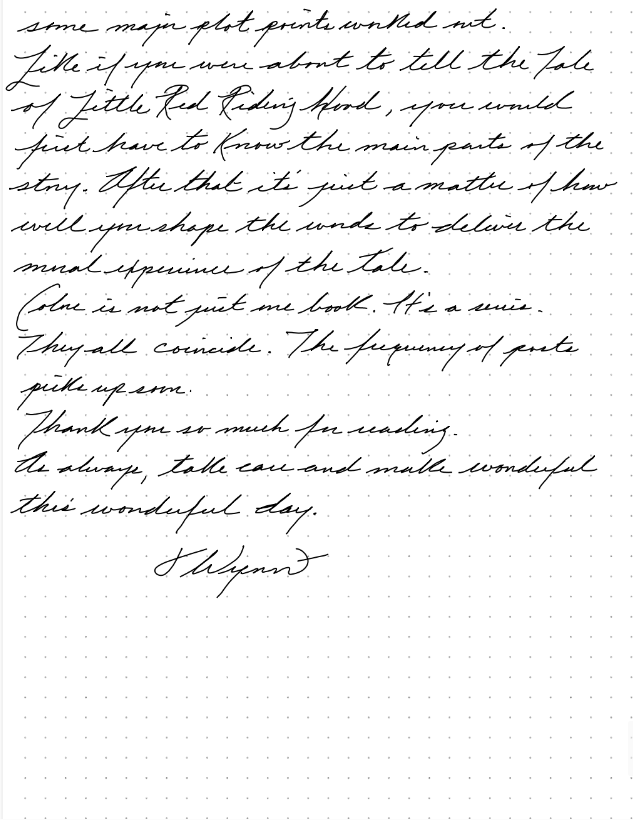 some major plot points worked out.
Like if you were about to tell the Tale
of Little Red Riding Hood, you would
first have to Know the main parts of the
story. After that it's just a matter of how
will you shape the words to deliver the
moral experience of the tale.
is not just one book. It's a series.
They all coincide. The frequency of posts
picks up soon.
Thank you so much for reading.
As always, take care and make wonderful
this wonderful day.
Wynn